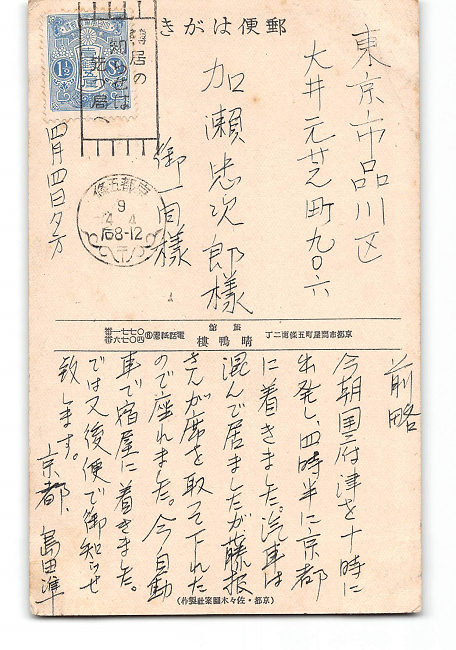 郵便はがき
東京市品川区
大井元芝町九〇六
加瀬忠次郎様
御一同様
四月四日夕方
転居の
知らせは
先づ局へ
京都五條
9
4
后8-12
旅館
晴鴨樓
京都市問屋町五條南二丁
前略
今朝国府津を十時に
出発し、四時半に京都
に着きました。汽車は
混んで居ましたが藤掘
さんが席を取って下れた
ので座れました。今自動
車で宿屋に着きました。
では又後便で御知らせ
致します。
京都、島田準
(京都・佐々木圖案社製作)